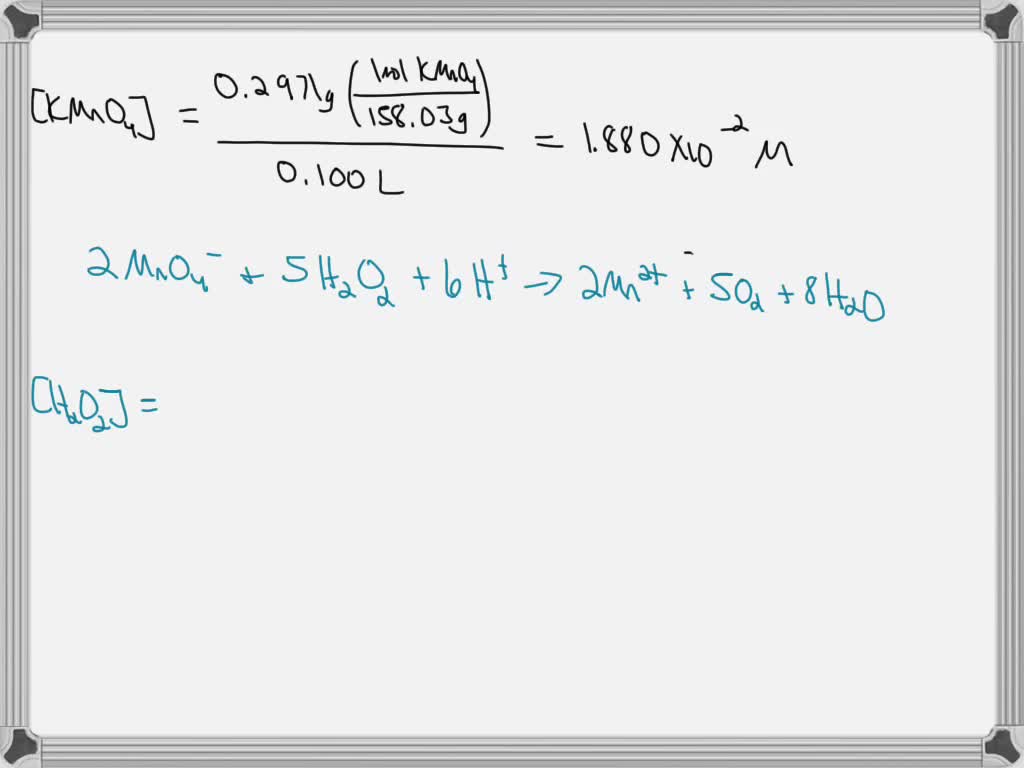 [KMnO₄] = 0.2971g (1mol KMnO₄ / 158.03g) / 0.100 L = 1.880 ×10⁻² M
2MnO₄⁻ + 5H₂O₂ + 6H⁺ → 2Mn²⁺ + 5O₂ + 8H₂O
[H₂O₂] =